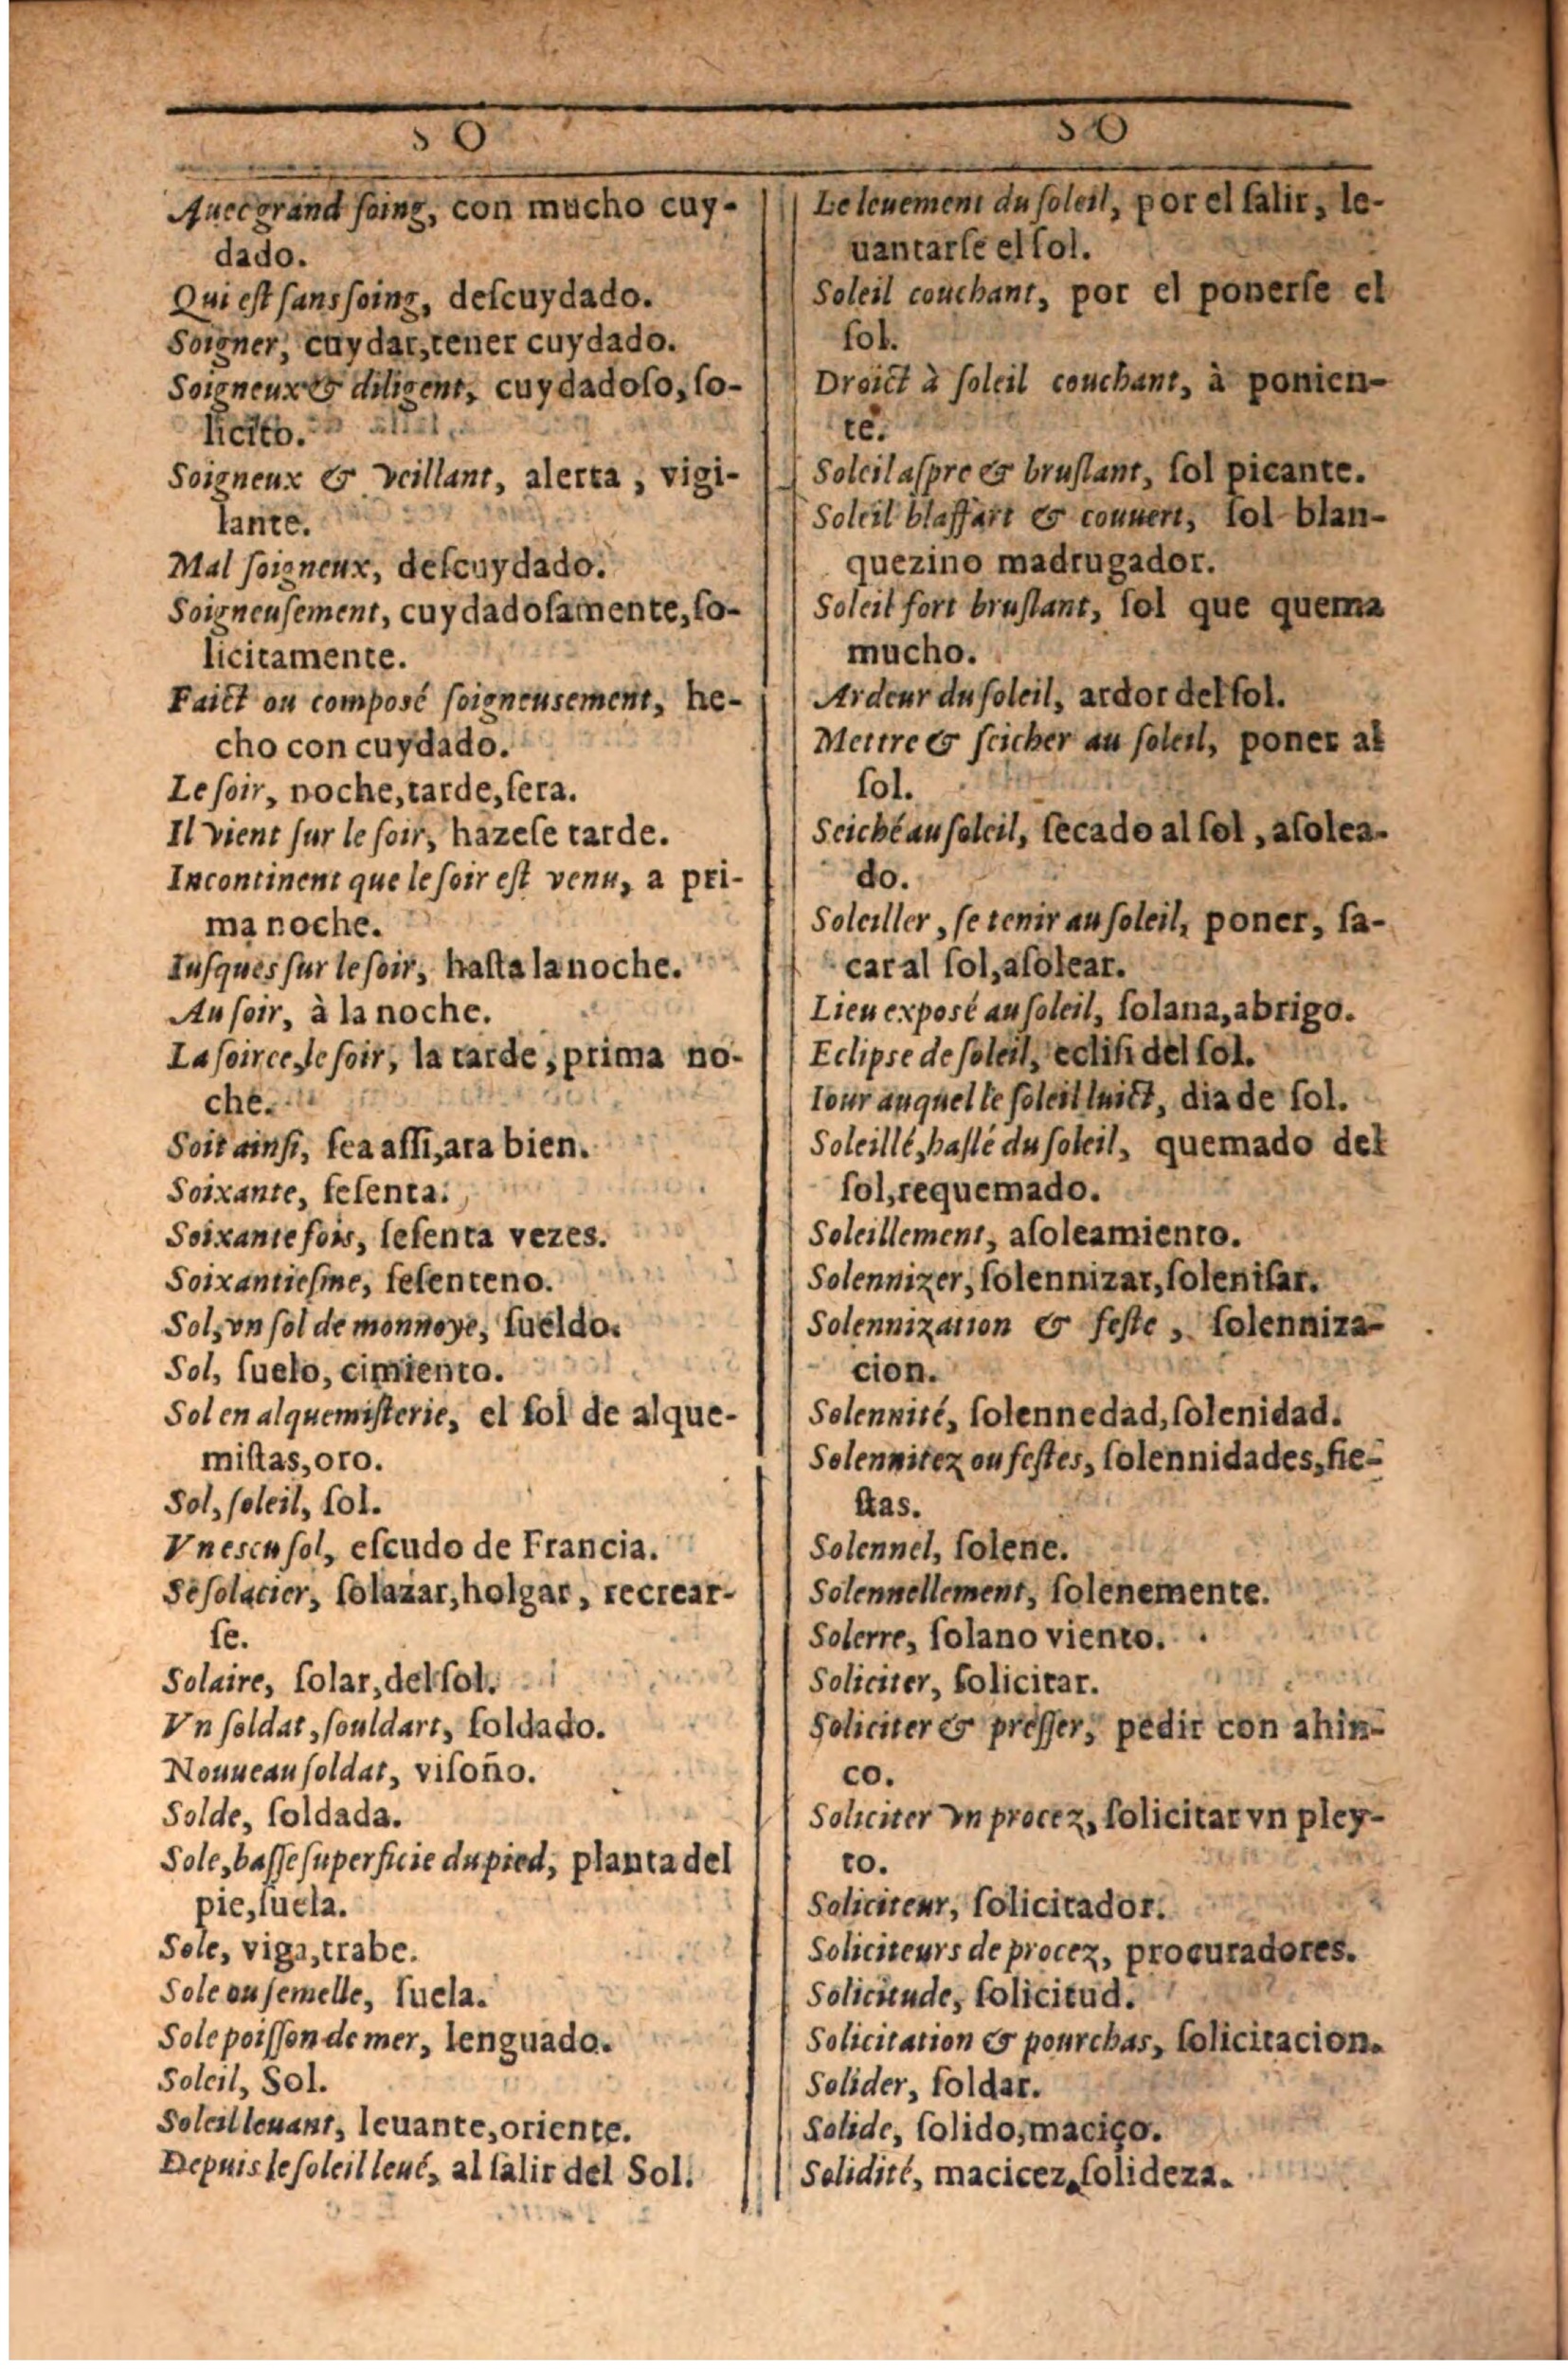 SO
SO
Auec grand ſoing, con mucho cuy-
dado.
Qui eſt ſans ſoing, deſcuydado.
Soigner, cuydar, tener cuydado.
Soigneux & diligent, cuydadoſo, ſo-
licito.
Soigneux & veillant, alerta, vigi-
lante.
Mal ſoigneux, deſcuydado.
Soigneuſement, cuydadoſamente, ſo-
licitamente.
Faict ou composé ſoigneusement, he-
cho con cuydado.
Le ſoir, noche, tarde, ſera.
Il vient ſur le ſoir, hazeſe tarde.
Incontinent que le ſoir eſt venu, a pri-
ma noche.
Iuſques ſur le ſoir, haſta la noche.
Au ſoir, à la noche.
La ſoiree, le ſoir, la tarde, prima no-
che.
Soit ainſi, ſea aſſi, ara bien.
Soixante, ſeſenta.
Soixante fois, ſeſenta vezes.
Soixantieſme, ſeſenteno.
Sol, vn ſol de monnoye, ſueldo.
Sol, ſuelo, cimiento.
Sol en alquemiſterie, el ſol de alque-
miſtas, oro.
Sol, ſoleil, ſol.
Vn escu ſol, eſcudo de Francia.
Se ſolacier, ſolazar, holgar, recrear-
ſe.
Solaire, ſolar, del ſol.
Vn ſoldat, ſouldart, ſoldado.
Nouueau ſoldat, viſoño.
Solde, ſoldada.
Sole, baſſe ſuperficie du pied, planta del
pie, ſuela.
Sole, viga, trabe.
Sole ou ſemelle, ſuela.
Sole poiſſon de mer, lenguado.
Soleil, Sol.
Soleil leuant, leuante, oriente.
Depuis le ſoleil leué, al ſalir del Sol.
Le leuement du ſoleil, por el ſalir, le-
uantarſe el ſol.
Soleil couchant, por el ponerſe el
ſol.
Droict à ſoleil couchant, à ponien-
te.
Soleil aſpre & bruſlant, ſol picante.
Soleil blaffart & couuert, ſol blan-
quezino madrugador.
Soleil fort bruſlant, ſol que quema
mucho.
Ardeur du ſoleil, ardor del ſol.
Mettre & ſeicher au ſoleil, poner al
ſol.
Seiché au ſoleil, ſecado al ſol, aſolea-
do.
Soleiller, ſe tenir au ſoleil, poner, ſa-
car al ſol, aſolear.
Lieu exposé au ſoleil, ſolana, abrigo.
Eclipse de ſoleil, eclifi del ſol.
Iour auquel le ſoleil luict, dia de ſol.
Soleillé, haſlé du ſoleil, quemado del
ſol, requemado.
Soleillement, aſoleamiento.
Solennizer, ſolennizar, ſoleniſar.
Solennization & feſte, ſolenniza-
cion.
Solennité, ſolennedad, ſolenidad.
Solennitez ou feſtes, ſolennidades, fie-
ſtas.
Solennel, ſolene.
Solennellement, ſolenemente.
Solerre, ſolano viento.
Soliciter, ſolicitar.
Soliciter & preſſer, pedir con ahin-
co.
Soliciter vn procez, ſolicitar vn pley-
to.
Soliciteur, ſolicitador.
Soliciteurs de procez, procuradores.
Solicitude, ſolicitud.
Solicitation & pourchas, ſolicitacion.
Solider, ſoldar.
Solide, ſolido, maciço.
Solidité, macicez, ſolideza.